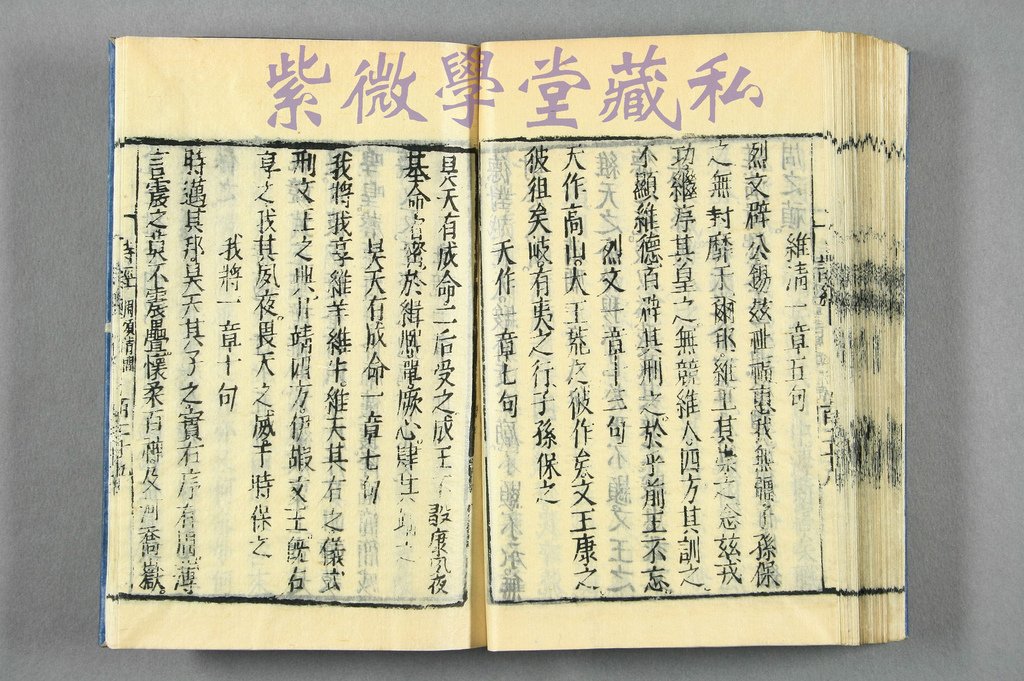 紫微學堂藏私
維清一章五句
烈文辟公錫茲祉福惠我無疆子孫保
之無封靡于爾邦維王其崇之念茲戎
功繼序其皇之無競維人四方其訓之
不顯維德百辟其刑之於乎前王不忘
烈文一章十三句
天作高山大王荒之彼作矣文王康之
彼徂矣岐有夷之行子孫保之
天作一章七句
昊天有成命二后受之成王不敢康夙夜
基命宥密於緝熙單厥心肆其靖之
昊天有成命一章七句
我將我享維羊維牛維天其右之儀式
刑文王之典日靖四方伊嘏文王既右
享之我其夙夜畏天之威于時保之
我將一章十句
時邁其邦昊天其子之實右序有周薄
言震之莫不震疊懷柔百神及河喬嶽
詩經 周頌清廟